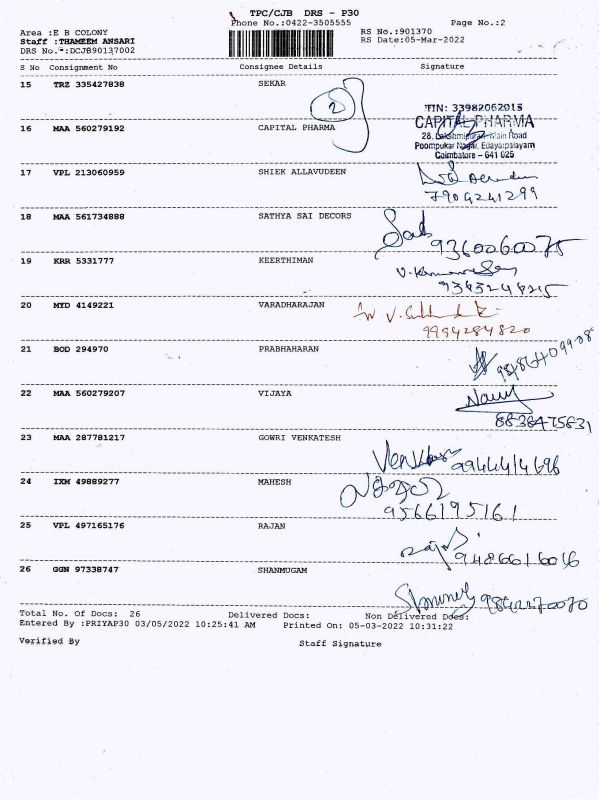 TPC/CJB DRS - P30
Area :E B COLONY Phone No.:0422-3505555 Page No.:2
Staff :THAMEEM ANSARI RS No.:901370
DRS No.:DCJB90137002 RS Date:05-Mar-2022
S No Consignment No Consignee Details Signature
15 TRZ 335427838 SEKAR
2
TIN: 33982062015
16 MAA 560279192 CAPITAL PHARMA CAPITAL PHARMA
28, Lakshmipuram Main Road
Poompukar Nagar, Edayarpalayam
Coimbatore - 641 025
17 VPL 213060959 SHIEK ALLAVUDEEN
7904241299
18 MAA 561734888 SATHYA SAI DECORS
9360060075
19 KRR 5331777 KEERTHIMAN
20 MYD 4149221 VARADHARAJAN
9994284820
21 BOD 294970 PRABHAHARAN
22 MAA 560279207 VIJAYA
23 MAA 287781217 GOWRI VENKATESH
24 IXM 49889277 MAHESH
9566195161
25 VPL 497165176 RAJAN
9486616016
26 GGN 97338747 SHANMUGAM
Total No. Of Docs: 26 Delivered Docs: Non Delivered Docs:
Entered By :PRIYAP30 03/05/2022 10:25:41 AM Printed On: 05-03-2022 10:31:22
Verified By Staff Signature